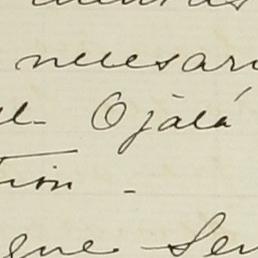 necesari
el- Ojalá
tion -
que Sen